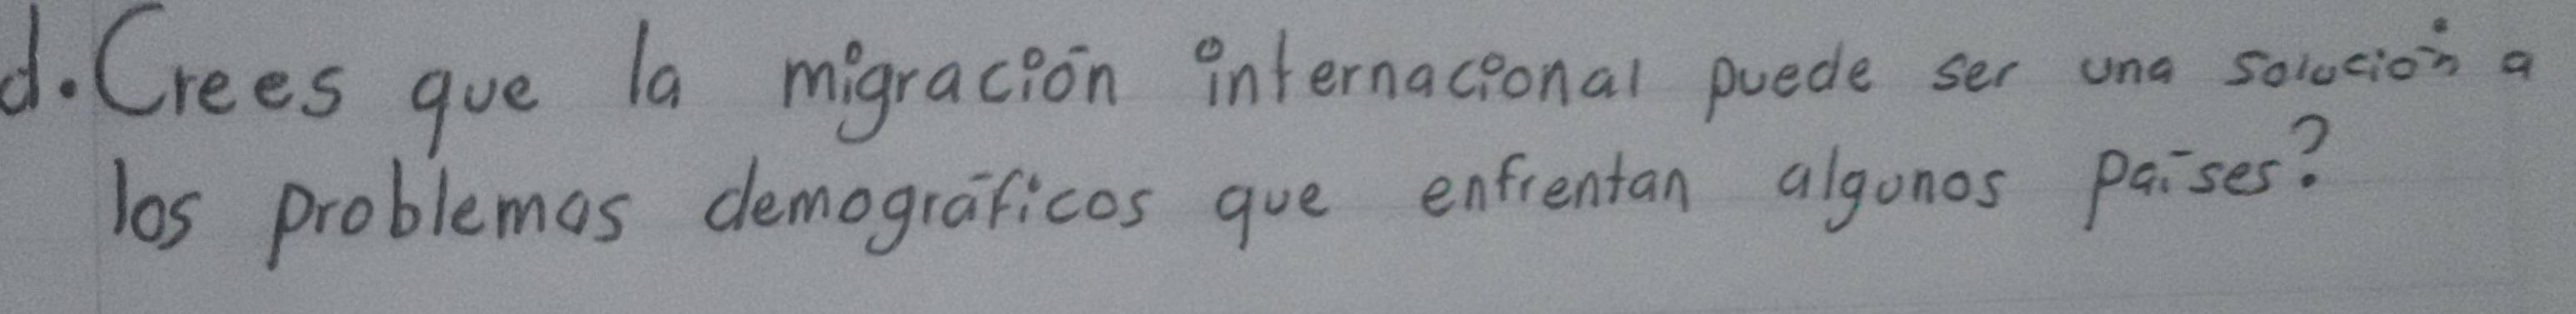 d. Crees que la migración internacional puede ser una solución a
los problemas demográficos que enfrentan algunos países?